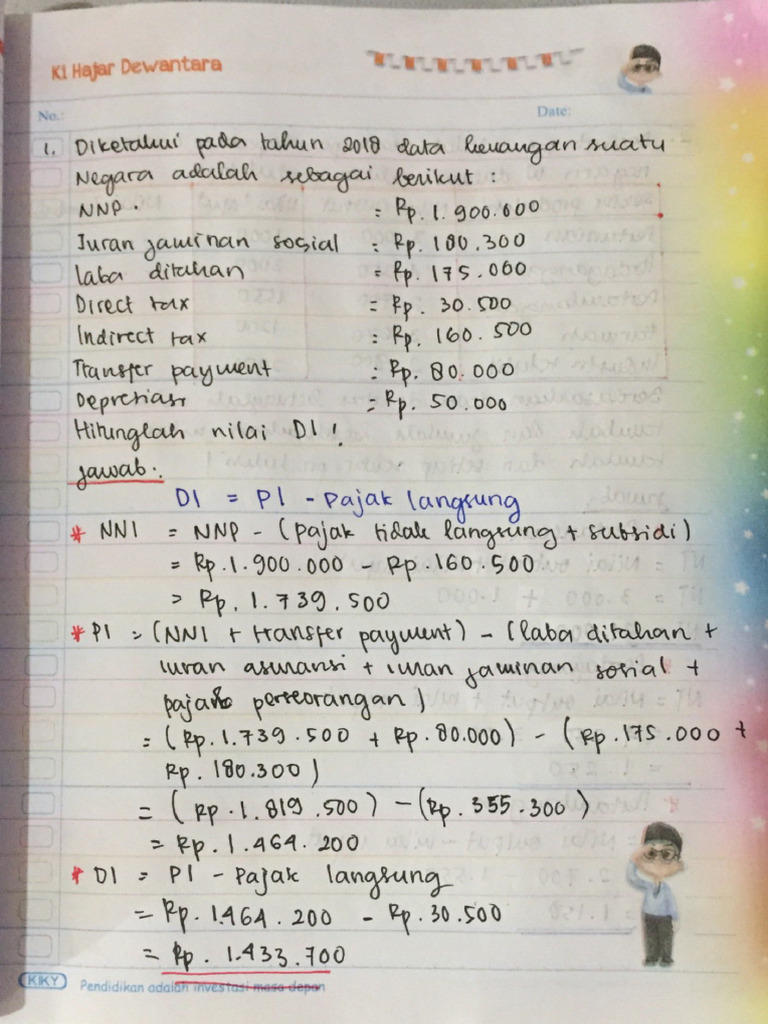 Ki Hajar Dewantara
No.: Date:
1. Diketahui pada tahun 2018 data keuangan suatu
Negara adalah sebagai berikut :
NNP. = Rp. 1.900.000
Iuran jaminan sosial = Rp. 180.300
laba ditahan = Rp. 175.000
Direct tax = Rp. 30.500
Indirect tax = Rp. 160.500
Transfer payment = Rp. 80.000
Depresiasi = Rp. 50.000
Hitunglah nilai DI !
jawab :
DI = PI - Pajak langsung
* NNI = NNP - (pajak tidak langsung + subsidi)
= Rp. 1.900.000 - Rp. 160.500
= Rp. 1.739.500
* PI = (NNI + transfer payment) - (laba ditahan +
iuran asuransi + iuran jaminan sosial +
pajak perseorangan)
= (Rp. 1.739.500 + Rp. 80.000) - (Rp. 175.000 +
Rp. 180.300)
= (Rp. 1.819.500) - (Rp. 355.300)
= Rp. 1.464.200
* DI = PI - Pajak langsung
= Rp. 1.464.200 - Rp. 30.500
= Rp. 1.433.700
KIKY Pendidikan adalah investasi masa depan